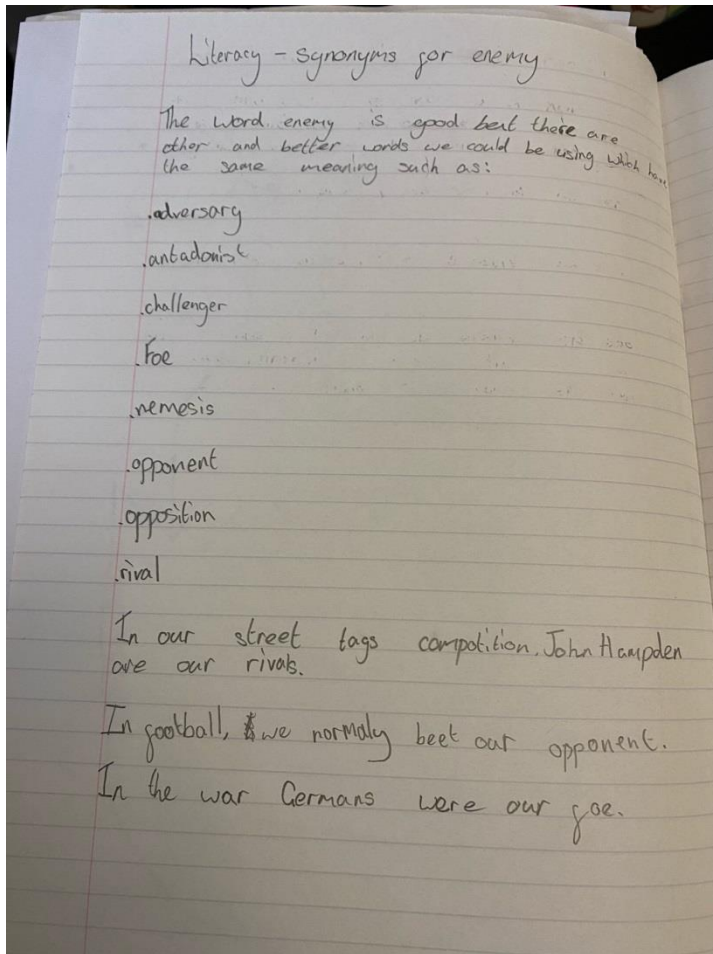 Literacy - synonyms for enemy
The word enemy is good but there are
other and better words we could be using which have
the same meaning such as:
.adversary
.antadonist
.challenger
.Foe
.nemesis
.opponent
.opposition
.rival
In our street tags compotition. John Hampden
are our rivals.
In football, we normaly beet our opponent.
In the war Germans were our foe.